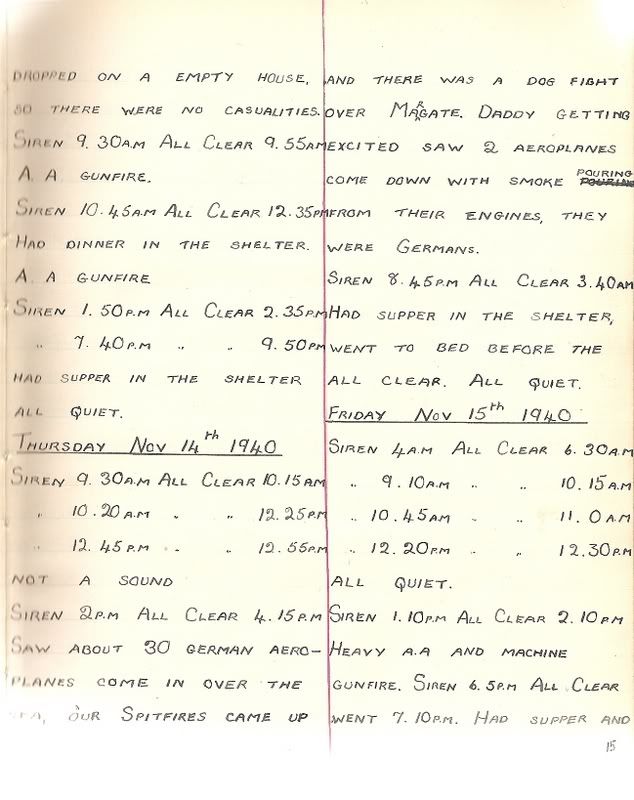 DROPPED ON A EMPTY HOUSE,
SO THERE WERE NO CASUALITIES.
SIREN 9.30AM ALL CLEAR 9.55AM
A.A GUNFIRE.
SIREN 10.45AM ALL CLEAR 12.35PM
HAD DINNER IN THE SHELTER.
A.A GUNFIRE
SIREN 1.50P.M ALL CLEAR 2.35PM
" 7.40P.M " " 9.50PM
HAD SUPPER IN THE SHELTER
ALL QUIET.
THURSDAY NOV 14th 1940
SIREN 9.30A.M ALL CLEAR 10.15AM
" 10.20A.M " " 12.25P.M
" 12.45P.M " " 12.55P.M
NOT A SOUND
SIREN 2P.M ALL CLEAR 4.15P.M
SAW ABOUT 30 GERMAN AERO-
PLANES COME IN OVER THE
SEA, OUR SPITFIRES CAME UP
AND THERE WAS A DOG FIGHT
OVER MARGATE. DADDY GETTING
EXCITED SAW 2 AEROPLANES
COME DOWN WITH SMOKE POURING
FROM THEIR ENGINES, THEY
WERE GERMANS.
SIREN 8.45P.M ALL CLEAR 3.40AM
HAD SUPPER IN THE SHELTER,
WENT TO BED BEFORE THE
ALL CLEAR. ALL QUIET.
FRIDAY NOV 15th 1940
SIREN 4A.M ALL CLEAR 6.30A.M
" 9.10A.M " " 10.15A.M
" 10.45AM " " 11.0AM
" 12.20P.M " " 12.30P.M
ALL QUIET.
SIREN 1.10P.M ALL CLEAR 2.10PM
HEAVY A.A AND MACHINE
GUNFIRE. SIREN 6.5P.M ALL CLEAR
WENT 7.10P.M. HAD SUPPER AND
15